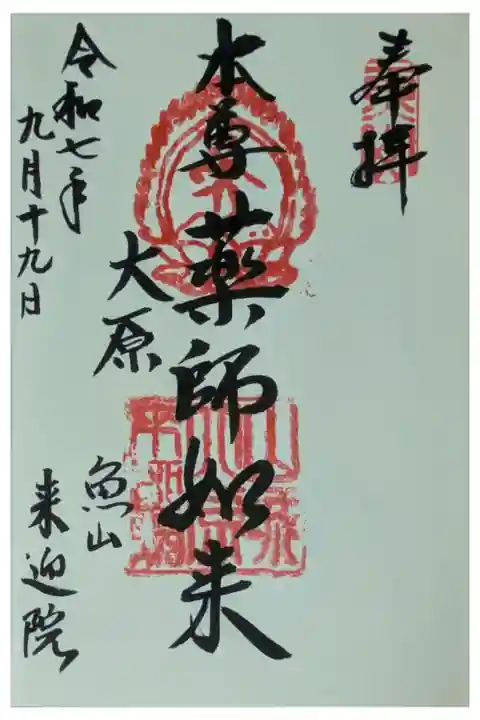 奉拝
本尊薬師如来
大原
魚山
来迎院
令和七年
九月十九日